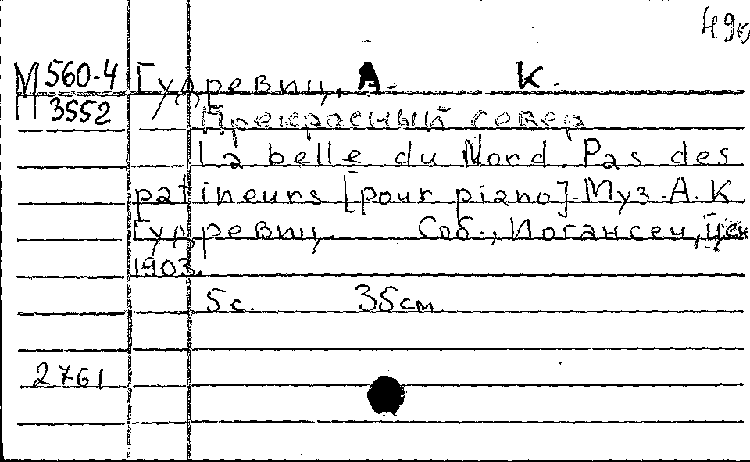 490
М 560-4 Гудревиц, А. К.
П 3552 Прекрасный север
La belle du Nord. Pas des
patineurs [pour piano]. Муз. А. К
Гудревиц. Соб., Иогансен, цен
1903.
5 с. 35 см
2761